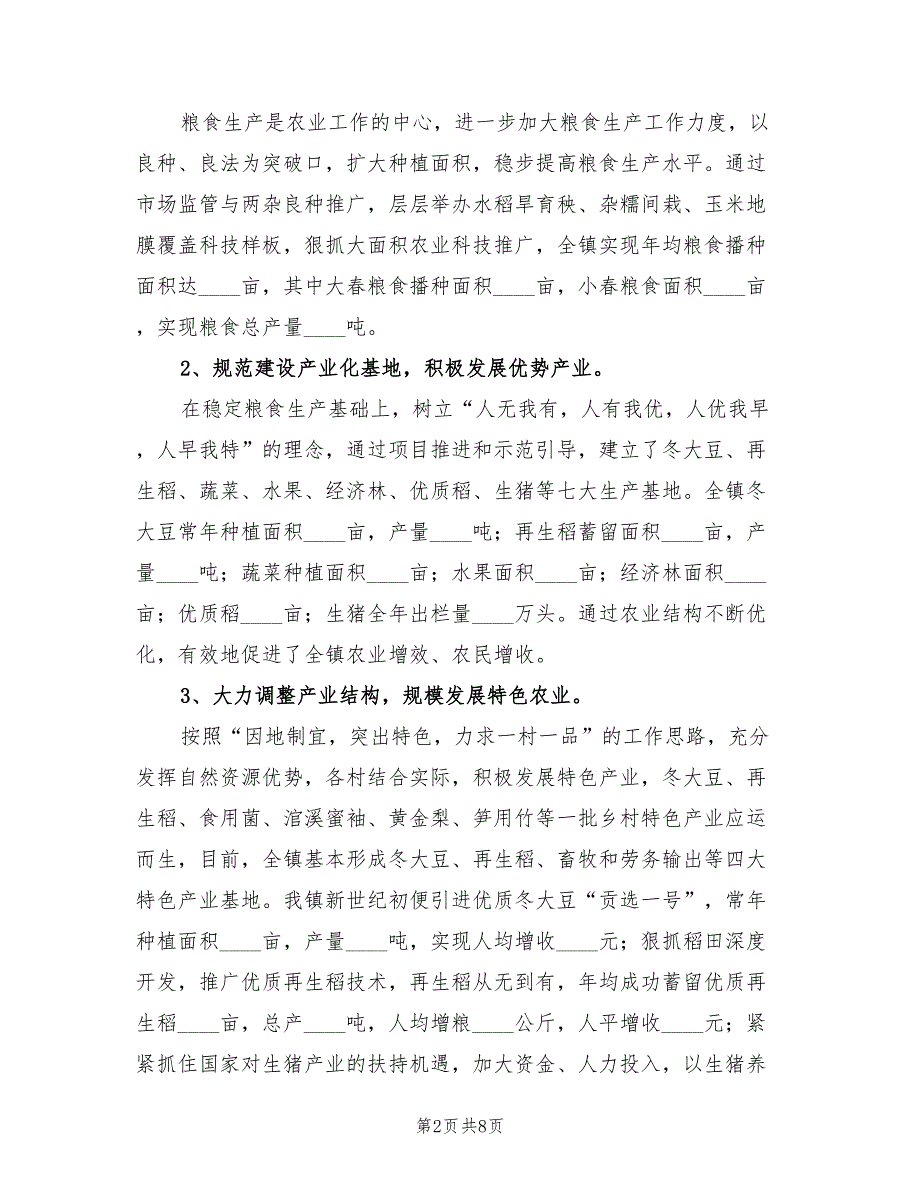 粮食生产是农业工作的中心，进一步加大粮食生产工作力度，以
良种、良法为突破口，扩大种植面积，稳步提高粮食生产水平。通过
市场监管与两杂良种推广，层层举办水稻旱育秧、杂糯间栽、玉米地
膜覆盖科技样板，狠抓大面积农业科技推广，全镇实现年均粮食播种
面积达____亩，其中大春粮食播种面积____亩，小春粮食面积____亩
，实现粮食总产量____吨。
2、规范建设产业化基地，积极发展优势产业。
在稳定粮食生产基础上，树立“人无我有，人有我优，人优我早
，人早我特”的理念，通过项目推进和示范引导，建立了冬大豆、再
生稻、蔬菜、水果、经济林、优质稻、生猪等七大生产基地。全镇冬
大豆常年种植面积____亩，产量____吨；再生稻蓄留面积____亩，产
量____吨；蔬菜种植面积____亩；水果面积____亩；经济林面积____
亩；优质稻____亩；生猪全年出栏量____万头。通过农业结构不断优
化，有效地促进了全镇农业增效、农民增收。
3、大力调整产业结构，规模发展特色农业。
按照“因地制宜，突出特色，力求一村一品”的工作思路，充分
发挥自然资源优势，各村结合实际，积极发展特色产业，冬大豆、再
生稻、食用菌、涫溪蜜袖、黄金梨、笋用竹等一批乡村特色产业应运
而生，目前，全镇基本形成冬大豆、再生稻、畜牧和劳务输出等四大
特色产业基地。我镇新世纪初便引进优质冬大豆“贡选一号”，常年
种植面积____亩，产量____吨，实现人均增收____元；狠抓稻田深度
开发，推广优质再生稻技术，再生稻从无到有，年均成功蓄留优质再
生稻____亩，总产____吨，人均增粮____公斤，人平增收____元；紧
紧抓住国家对生猪产业的扶持机遇，加大资金、人力投入，以生猪养
第2页 共8页